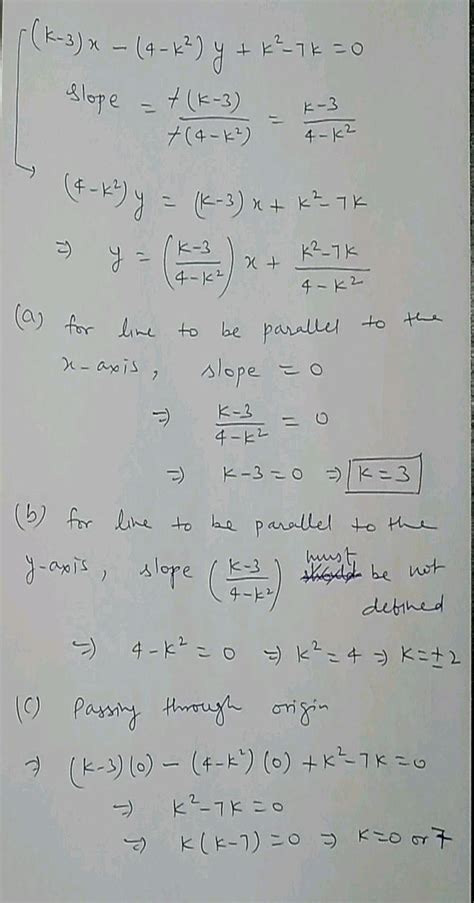 (k-3)x - (4-k²)y + k²-7k = 0
Slope = -(k-3) / -(4-k²) = k-3 / 4-k²
(4-k²)y = (k-3)x + k²-7k
⇒ y = (k-3 / 4-k²) x + k²-7k / 4-k²
(a) for line to be parallel to the
x-axis, slope = 0
⇒ k-3 / 4-k² = 0
⇒ k-3 = 0 ⇒ k = 3
(b) for line to be parallel to the
y-axis, slope (k-3 / 4-k²) must be not
defined
⇒ 4-k² = 0 ⇒ k² = 4 ⇒ k = ±2
(C) Passing through origin
⇒ (k-3)(0) - (4-k²)(0) + k²-7k = 0
⇒ k²-7k = 0
⇒ k(k-7) = 0 ⇒ k = 0 or 7